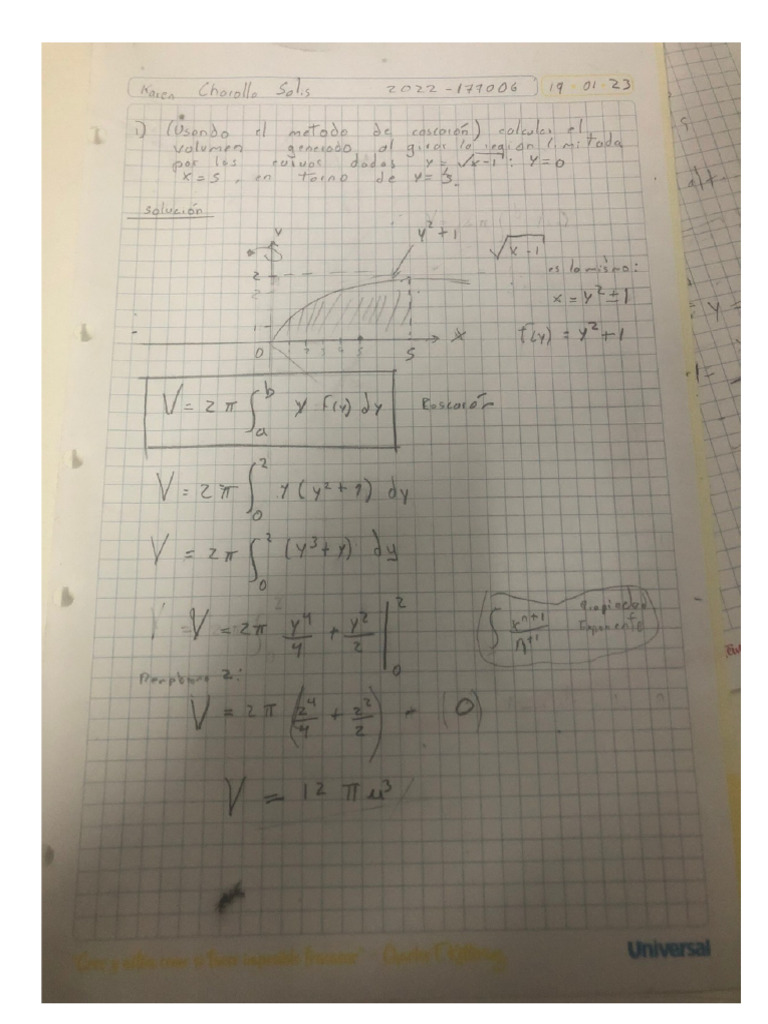 Karen Charollo Solis 2022-177006 19-01-23
1) (Usando el metodo de cascarón) calcular el
volumen generado al girar la región limitada
por las curvas dadas y = √x-1 ; y=0
x=5, en torno de y=3.
solución
y
y²+1
√x-1
es lo mismo:
x = y²+1
f(y) = y²+1
2
1
0 1 2 3 4 5 5 x
V = 2π ∫ₐᵇ y f(y) dy
V = 2π ∫₀² y (y²+1) dy
V = 2π ∫₀² (y³+y) dy
V = 2π y⁴/4 + y²/2 |₀²
∫ xⁿ⁺¹/n+1 Propiedad Exponente
2:
V = 2π (2⁴/4 + 2²/2) - (0)
V = 12 π u³
Universal